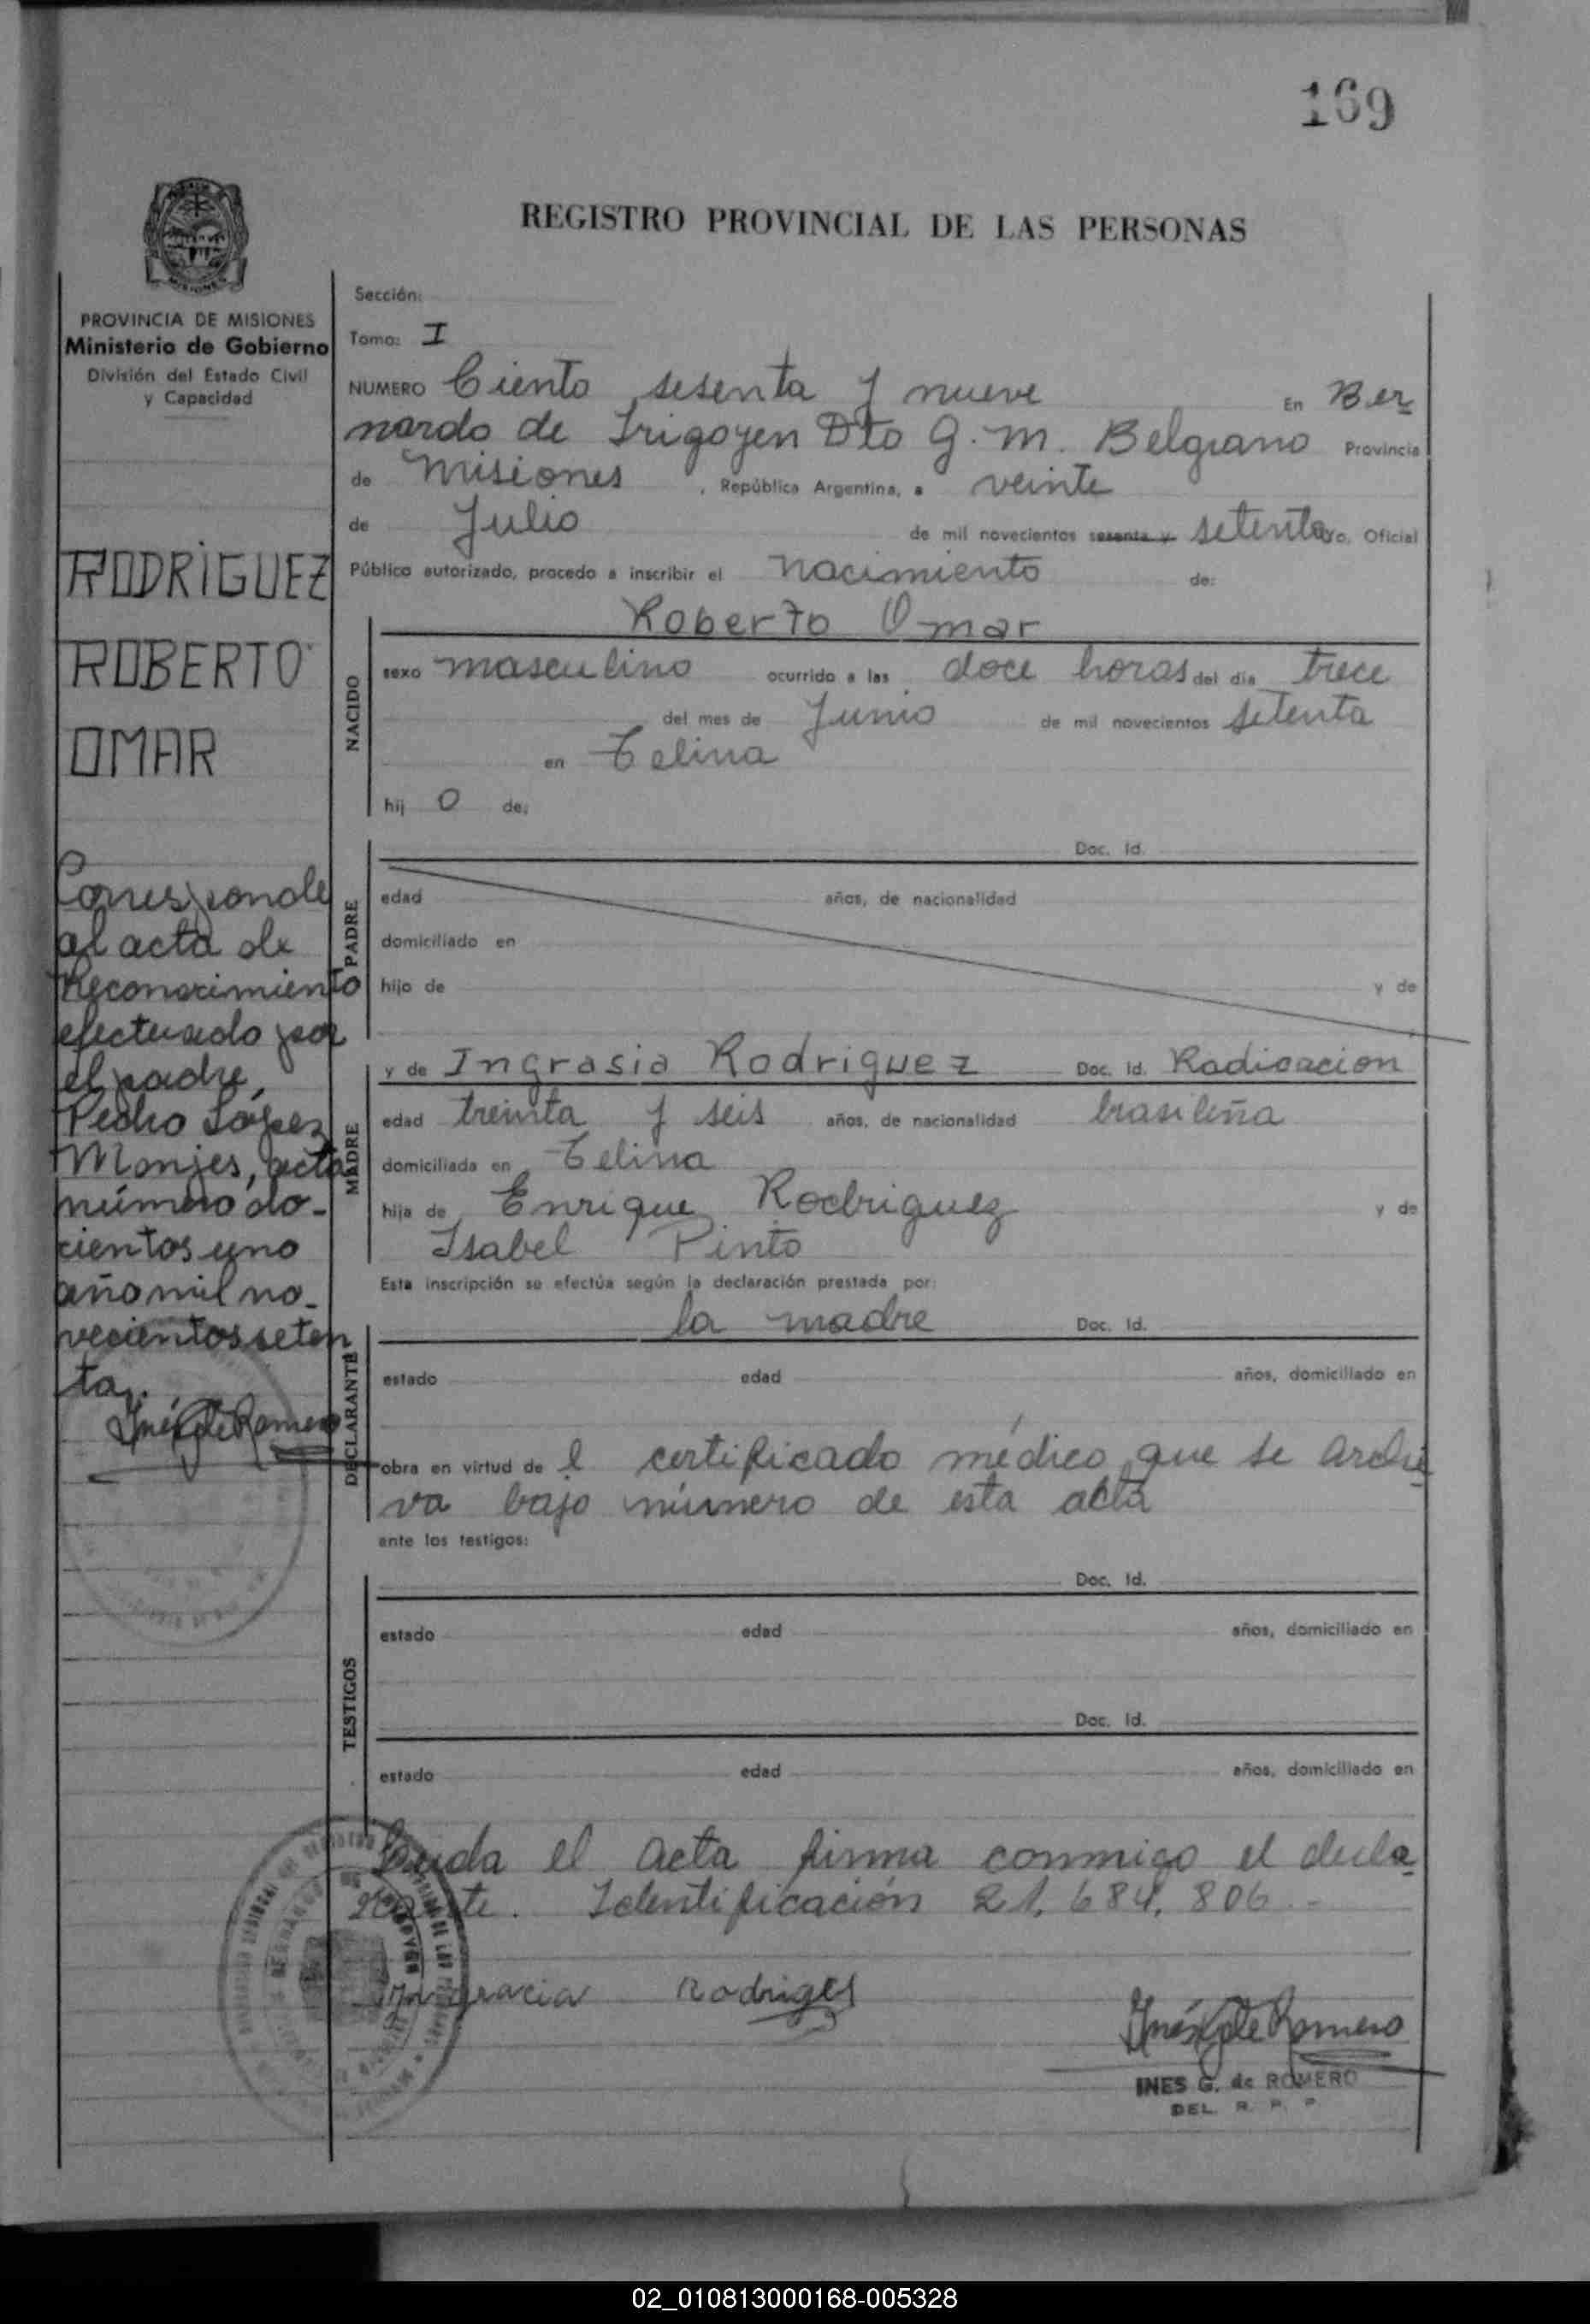 169
REGISTRO PROVINCIAL DE LAS PERSONAS
MISIONES
PROVINCIA DE MISIONES
Ministerio de Gobierno
División del Estado Civil
y Capacidad
RODRIGUEZ
ROBERTO
OMAR
Corresponde
al acta de
Reconocimiento
efectuado por
el padre,
Pedro López
Monjes, acta
número do-
cientos uno
año mil no-
vecientos seten
ta.
Inés G de Romero
Sección:
Tomo: I
NUMERO Ciento sesenta y nueve En Ber
nardo de Irigoyen Dto G. M. Belgrano Provincia
de Misiones, República Argentina, a veinte
de Julio de mil novecientos sesenta y setenta yo, Oficial
Público autorizado, procedo a inscribir el nacimiento de:
Roberto Omar
NACIDO
sexo masculino ocurrido a las doce horas del día trece
del mes de Junio de mil novecientos setenta
en Telina
hij o de:
PADRE
Doc. Id.
edad años, de nacionalidad
domiciliado en
hijo de y de
MADRE
y de Ingrasia Rodriguez Doc. Id. Radicacion
edad treinta y seis años, de nacionalidad brasileña
domiciliada en Telina
hija de Enrique Rodriguez y de
Isabel Pinto
Esta inscripción se efectúa según la declaración prestada por:
la madre Doc. Id.
DECLARANTE
estado edad años, domiciliado en
obra en virtud de l certificado médico que se archi
va bajo número de esta acta
ante los testigos:
TESTIGOS
Doc. Id.
estado edad años, domiciliado en
Doc. Id.
estado edad años, domiciliado en
Leida el acta firma conmigo el decla
rante. Identificación 21.684.806.-
Ingracia Rodriges
Inés G de Romero
INES G. de ROMERO
DEL. R. P. P
02_010813000168-005328